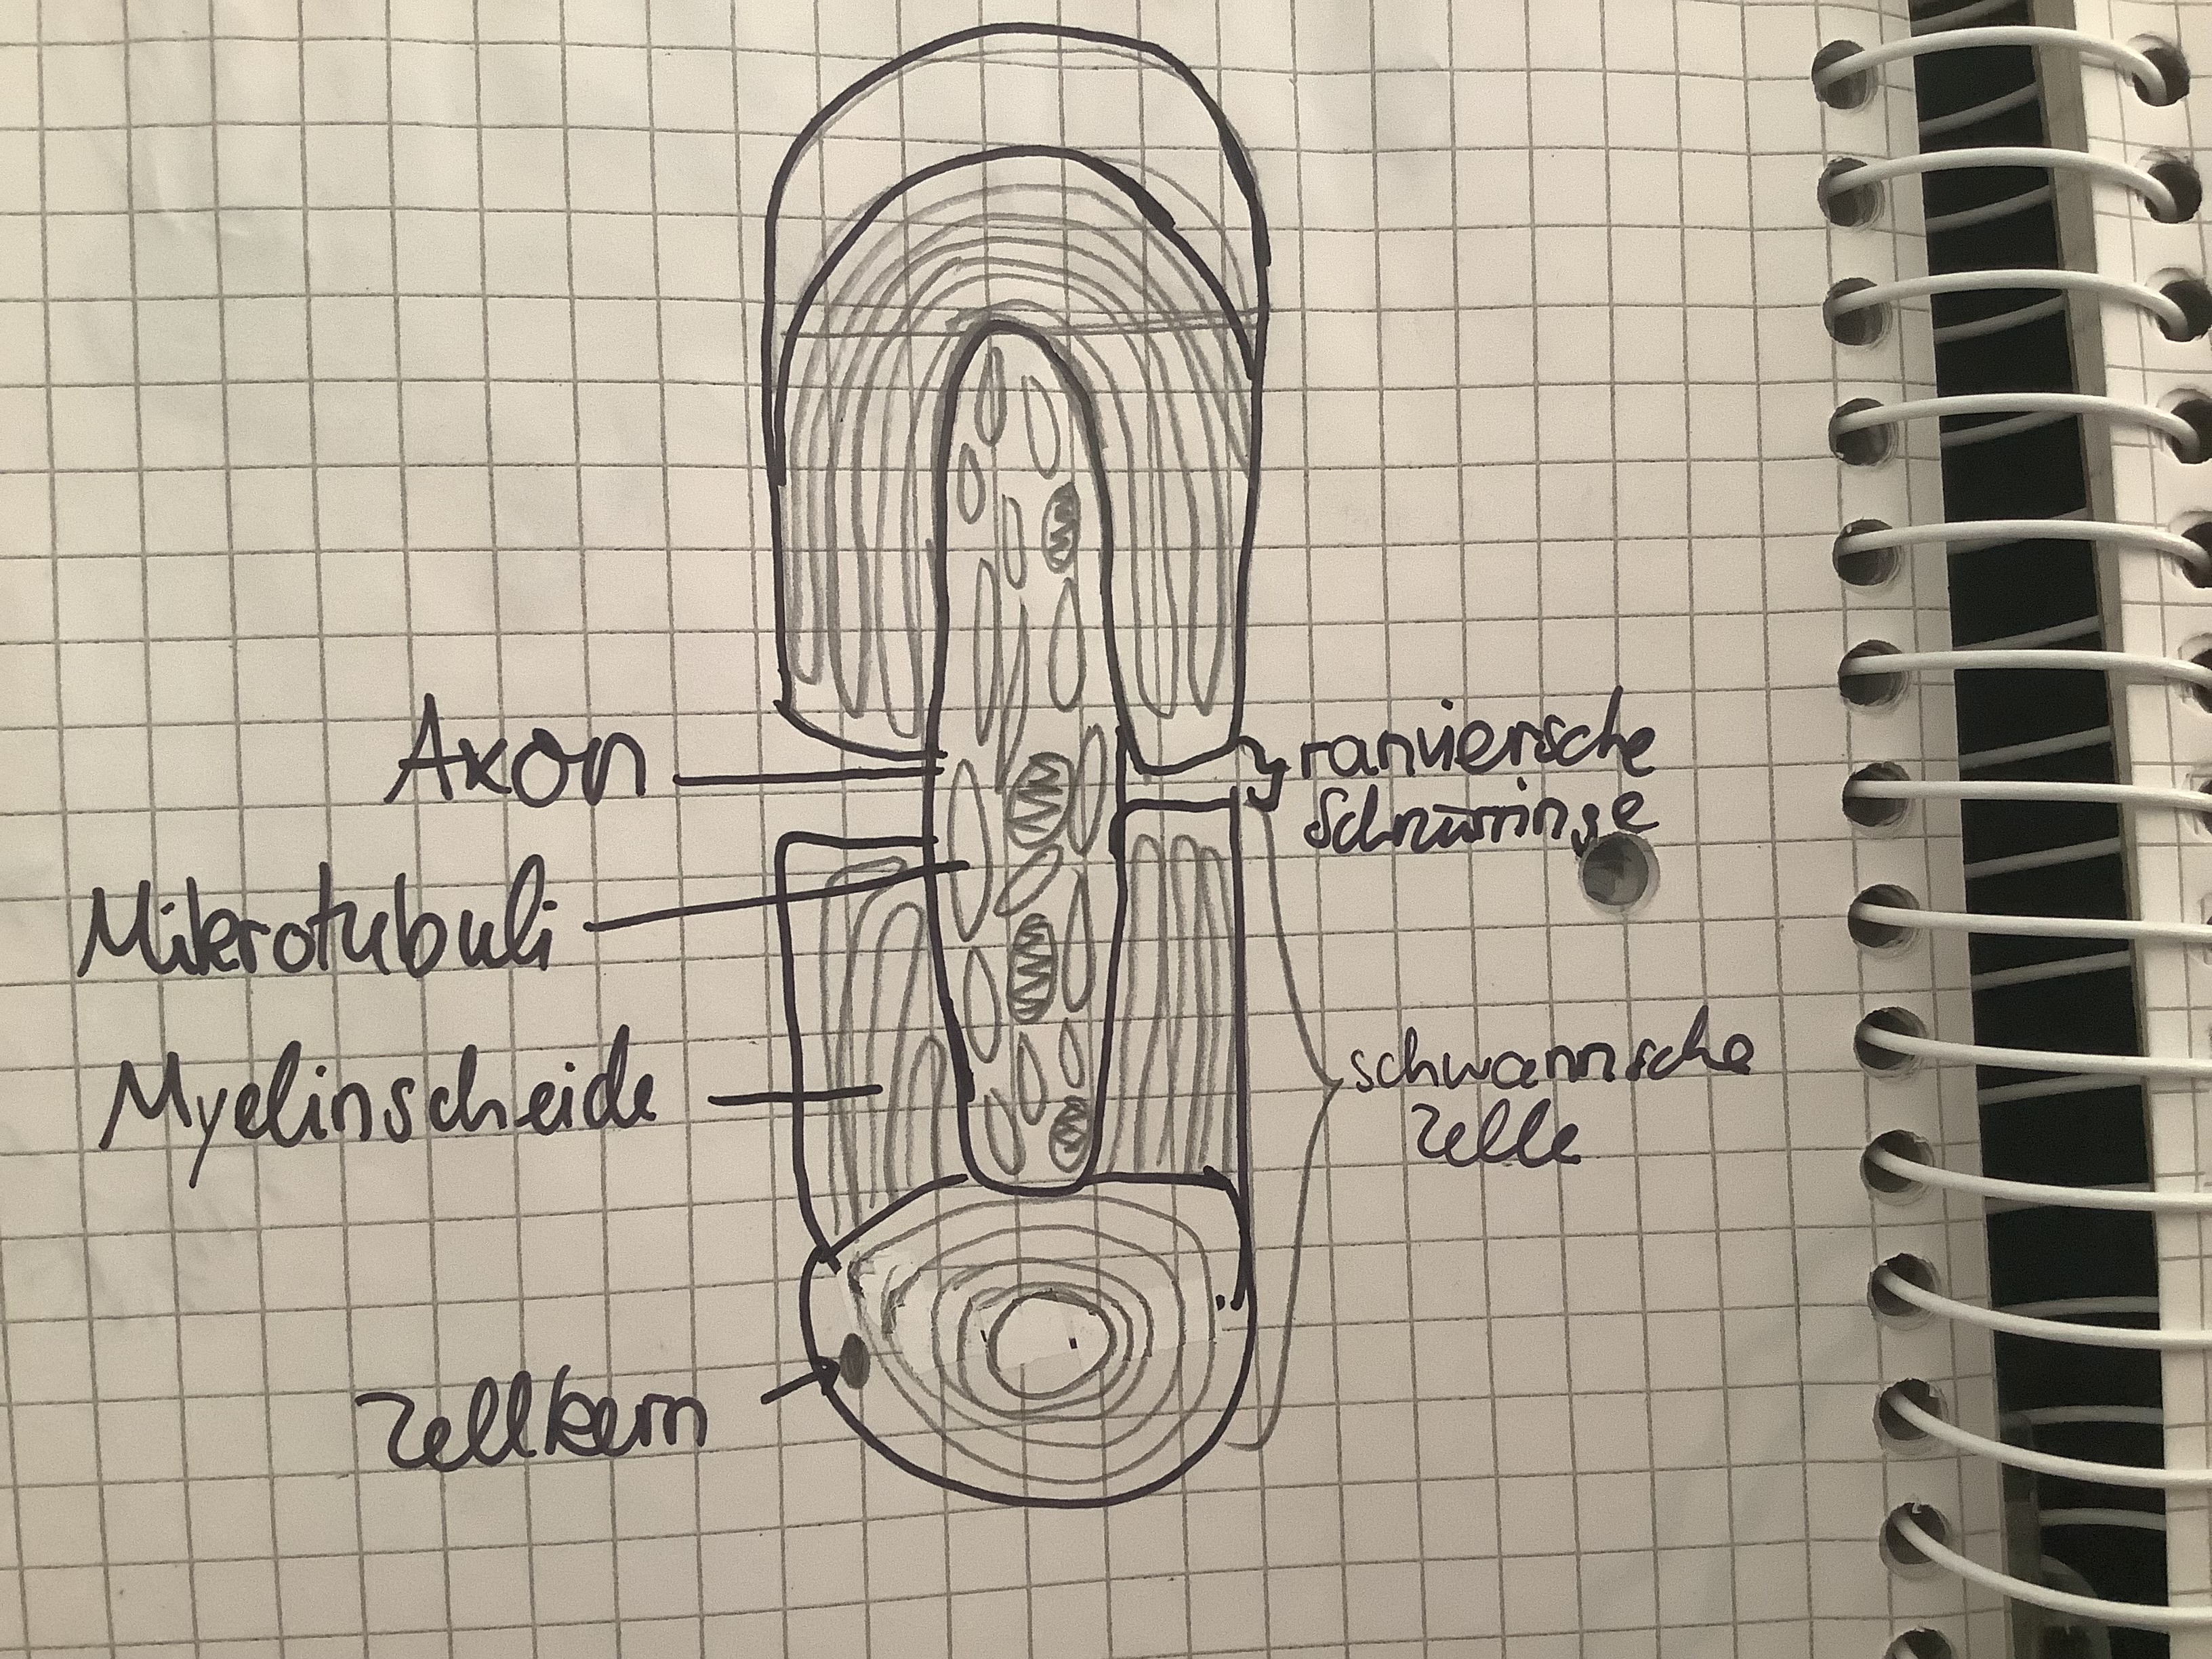 Axon
ranviersche
Schnürringe
Mikrotubuli
Myelinscheide
schwannsche
Zelle
Zellkern